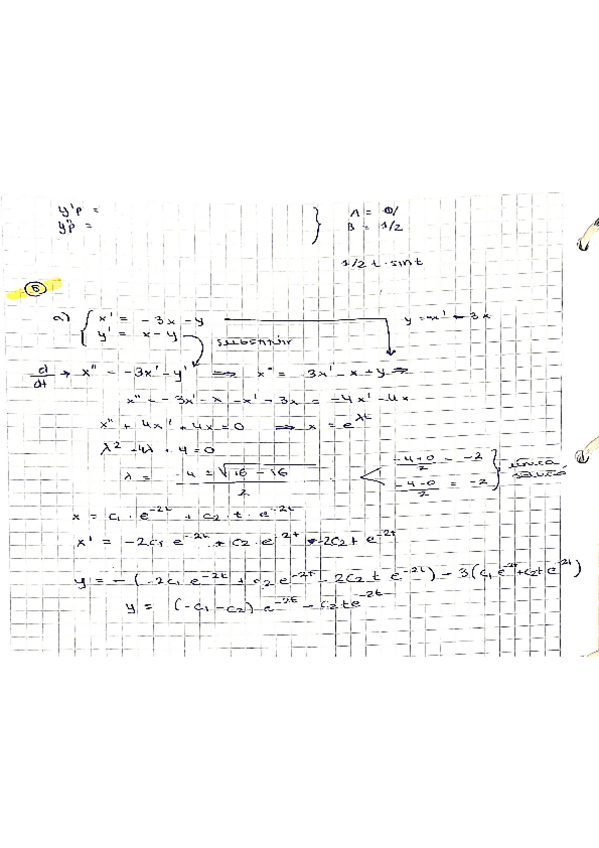 y'p =
y"p =
A = 0/
B = 1/2
1/2 t · sin t
5
a) { x' = -3x - y
y' = x - y
y = -x' - 3x
substituir
d/dt → x" = -3x' - y' ⟹ x" = -3x' - x + y ⟹
x" = -3x' - x - x' - 3x = -4x' - 4x
x" + 4x' + 4x = 0 ⟹ x = e^λt
λ² + 4λ + 4 = 0
λ = (-4 ± √(16 - 16))/2
(-4+0)/2 = -2
(-4-0)/2 = -2
única
x = c1 · e^-2t + c2 · t · e^-2t
x' = -2c1 e^-2t + c2 · e^-2t - 2c2 t e^-2t
y = -(-2c1 e^-2t + c2 e^-2t - 2c2 t e^-2t) - 3(c1 e^-2t + c2 t e^-2t)
y = (-c1 - c2) e^-2t - c2 t e^-2t